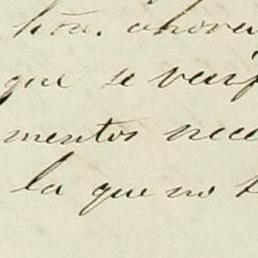 que se verif
mentos nece
la que no t